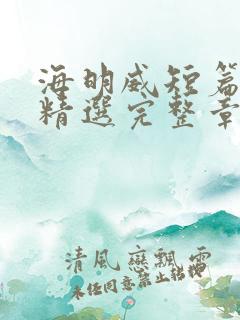 海明威短篇
精選完整章
清風戀飄雪
未经同意禁止转载